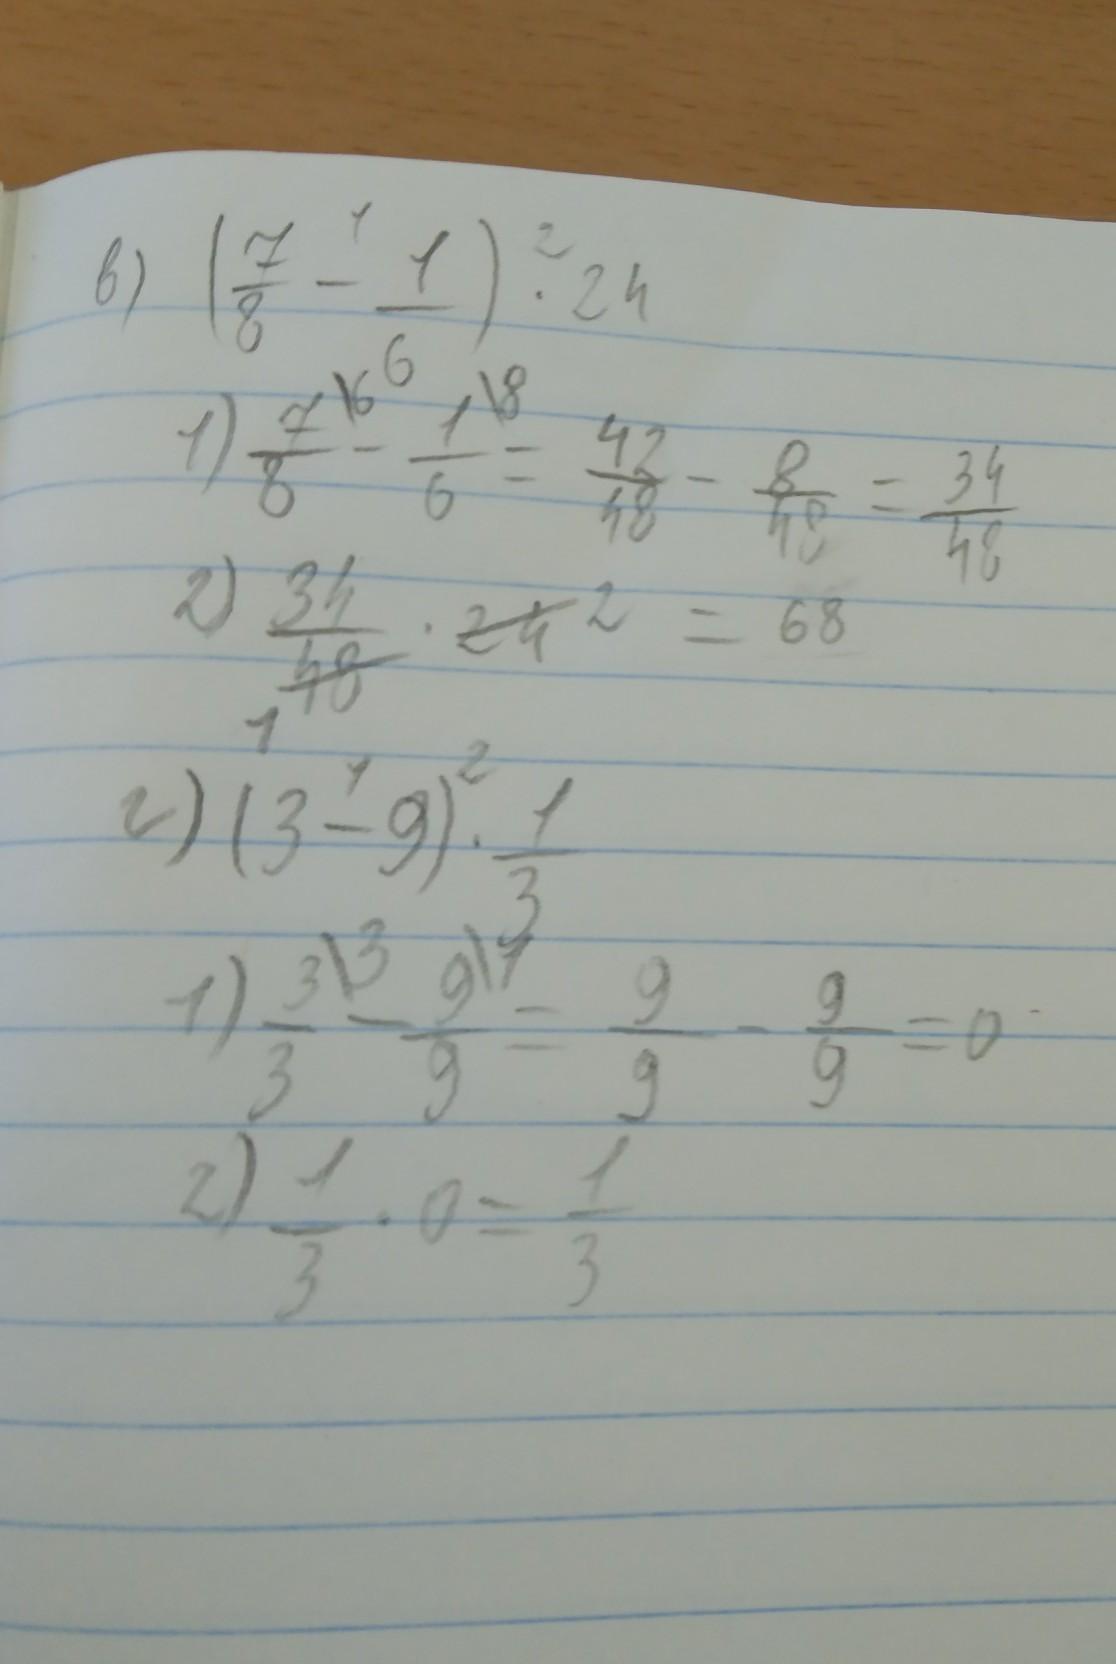 в) (7/8 -¹ 1/6) ·² 24
1) 7\6/8 - 1\8/6 = 42/48 - 8/48 = 34/48
2) 34/48 1 · 24 2 = 68
г) (3 -¹ 9) ·² 1/3
1) 3\3/3 - 9\1/9 = 9/9 - 9/9 = 0
2) 1/3 · 0 = 1/3